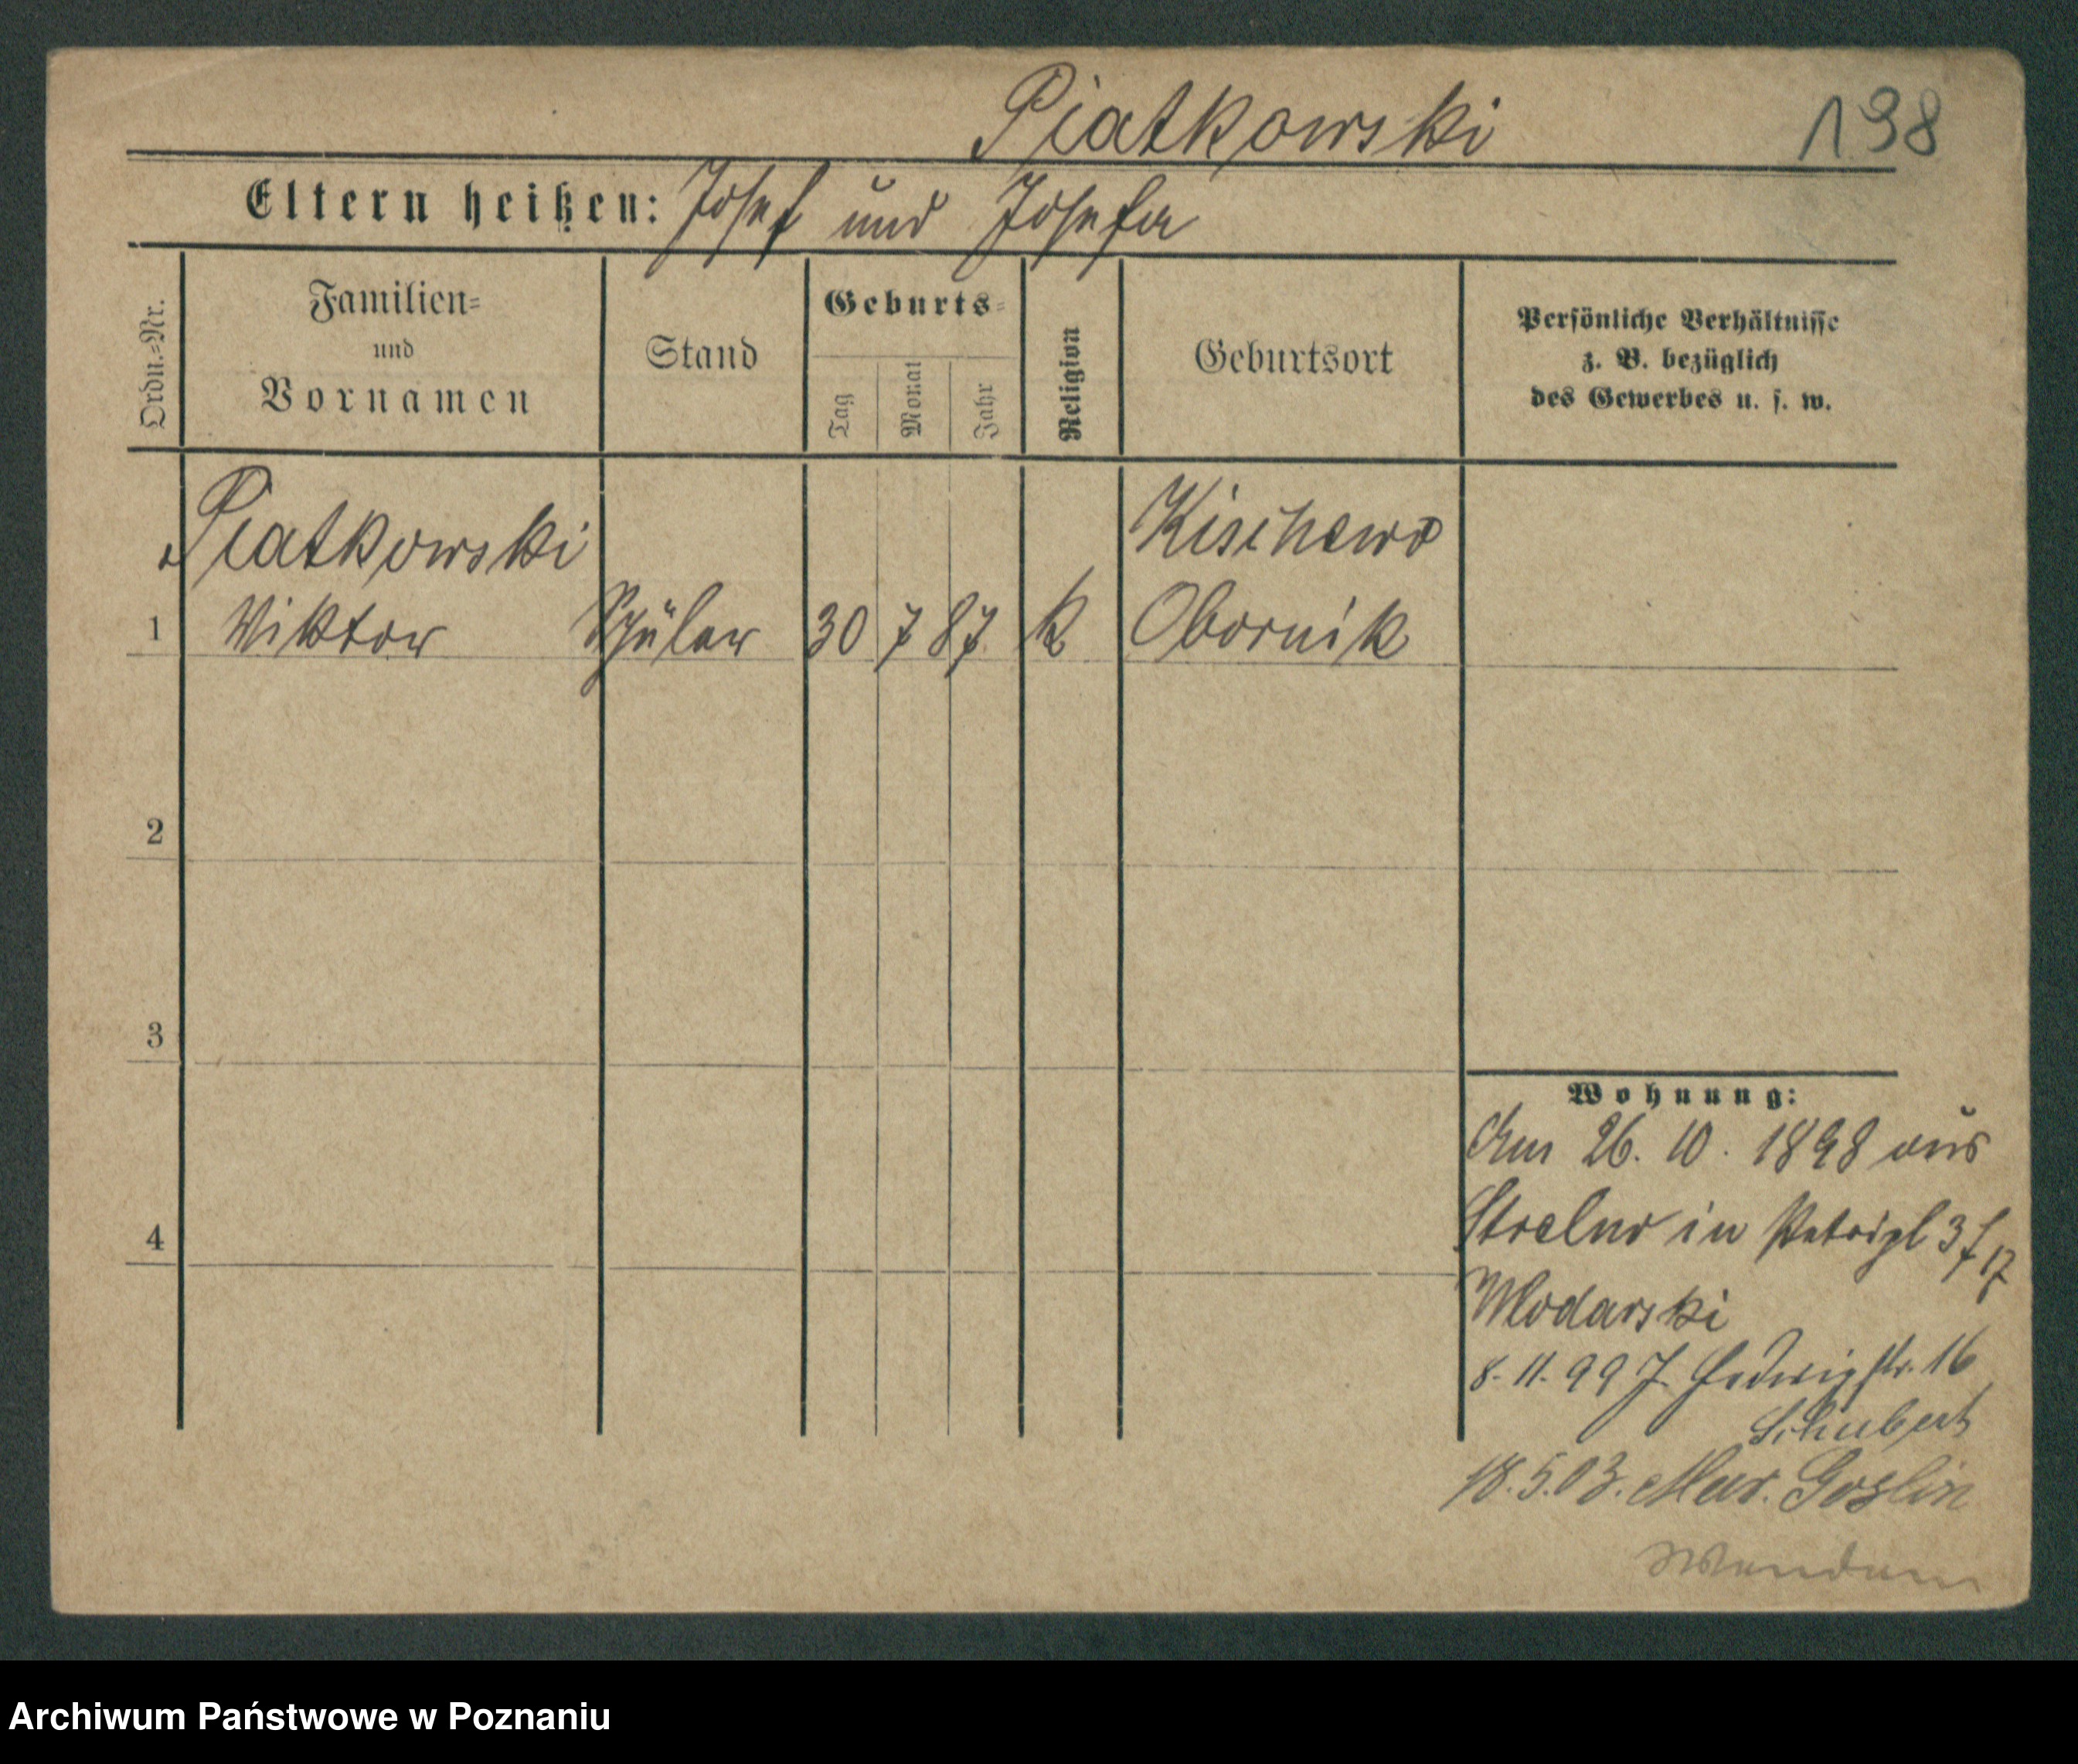 Piatkowski 198
Eltern heißen: Josef und Josefa
Ordn.=Nr.
Familien=
und
Vornamen
Stand
Geburts=
Tag
Monat
Jahr
Religion
Geburtsort
Persönliche Verhältnisse
z. B. bezüglich
des Gewerbes u. s. w.
Piatkowski Kischewo
1 Wiktor Schüler 30 7 87 k Obornik
2
3
4
Wohnung:
Am 26. 10. 1898 aus
Strelno in Petripl 3
Mlodarski
8. 11. 99 J. Hedwigstr. 16
Schubert
18. 5. 03. Mur. Goslin
Archiwum Państwowe w Poznaniu